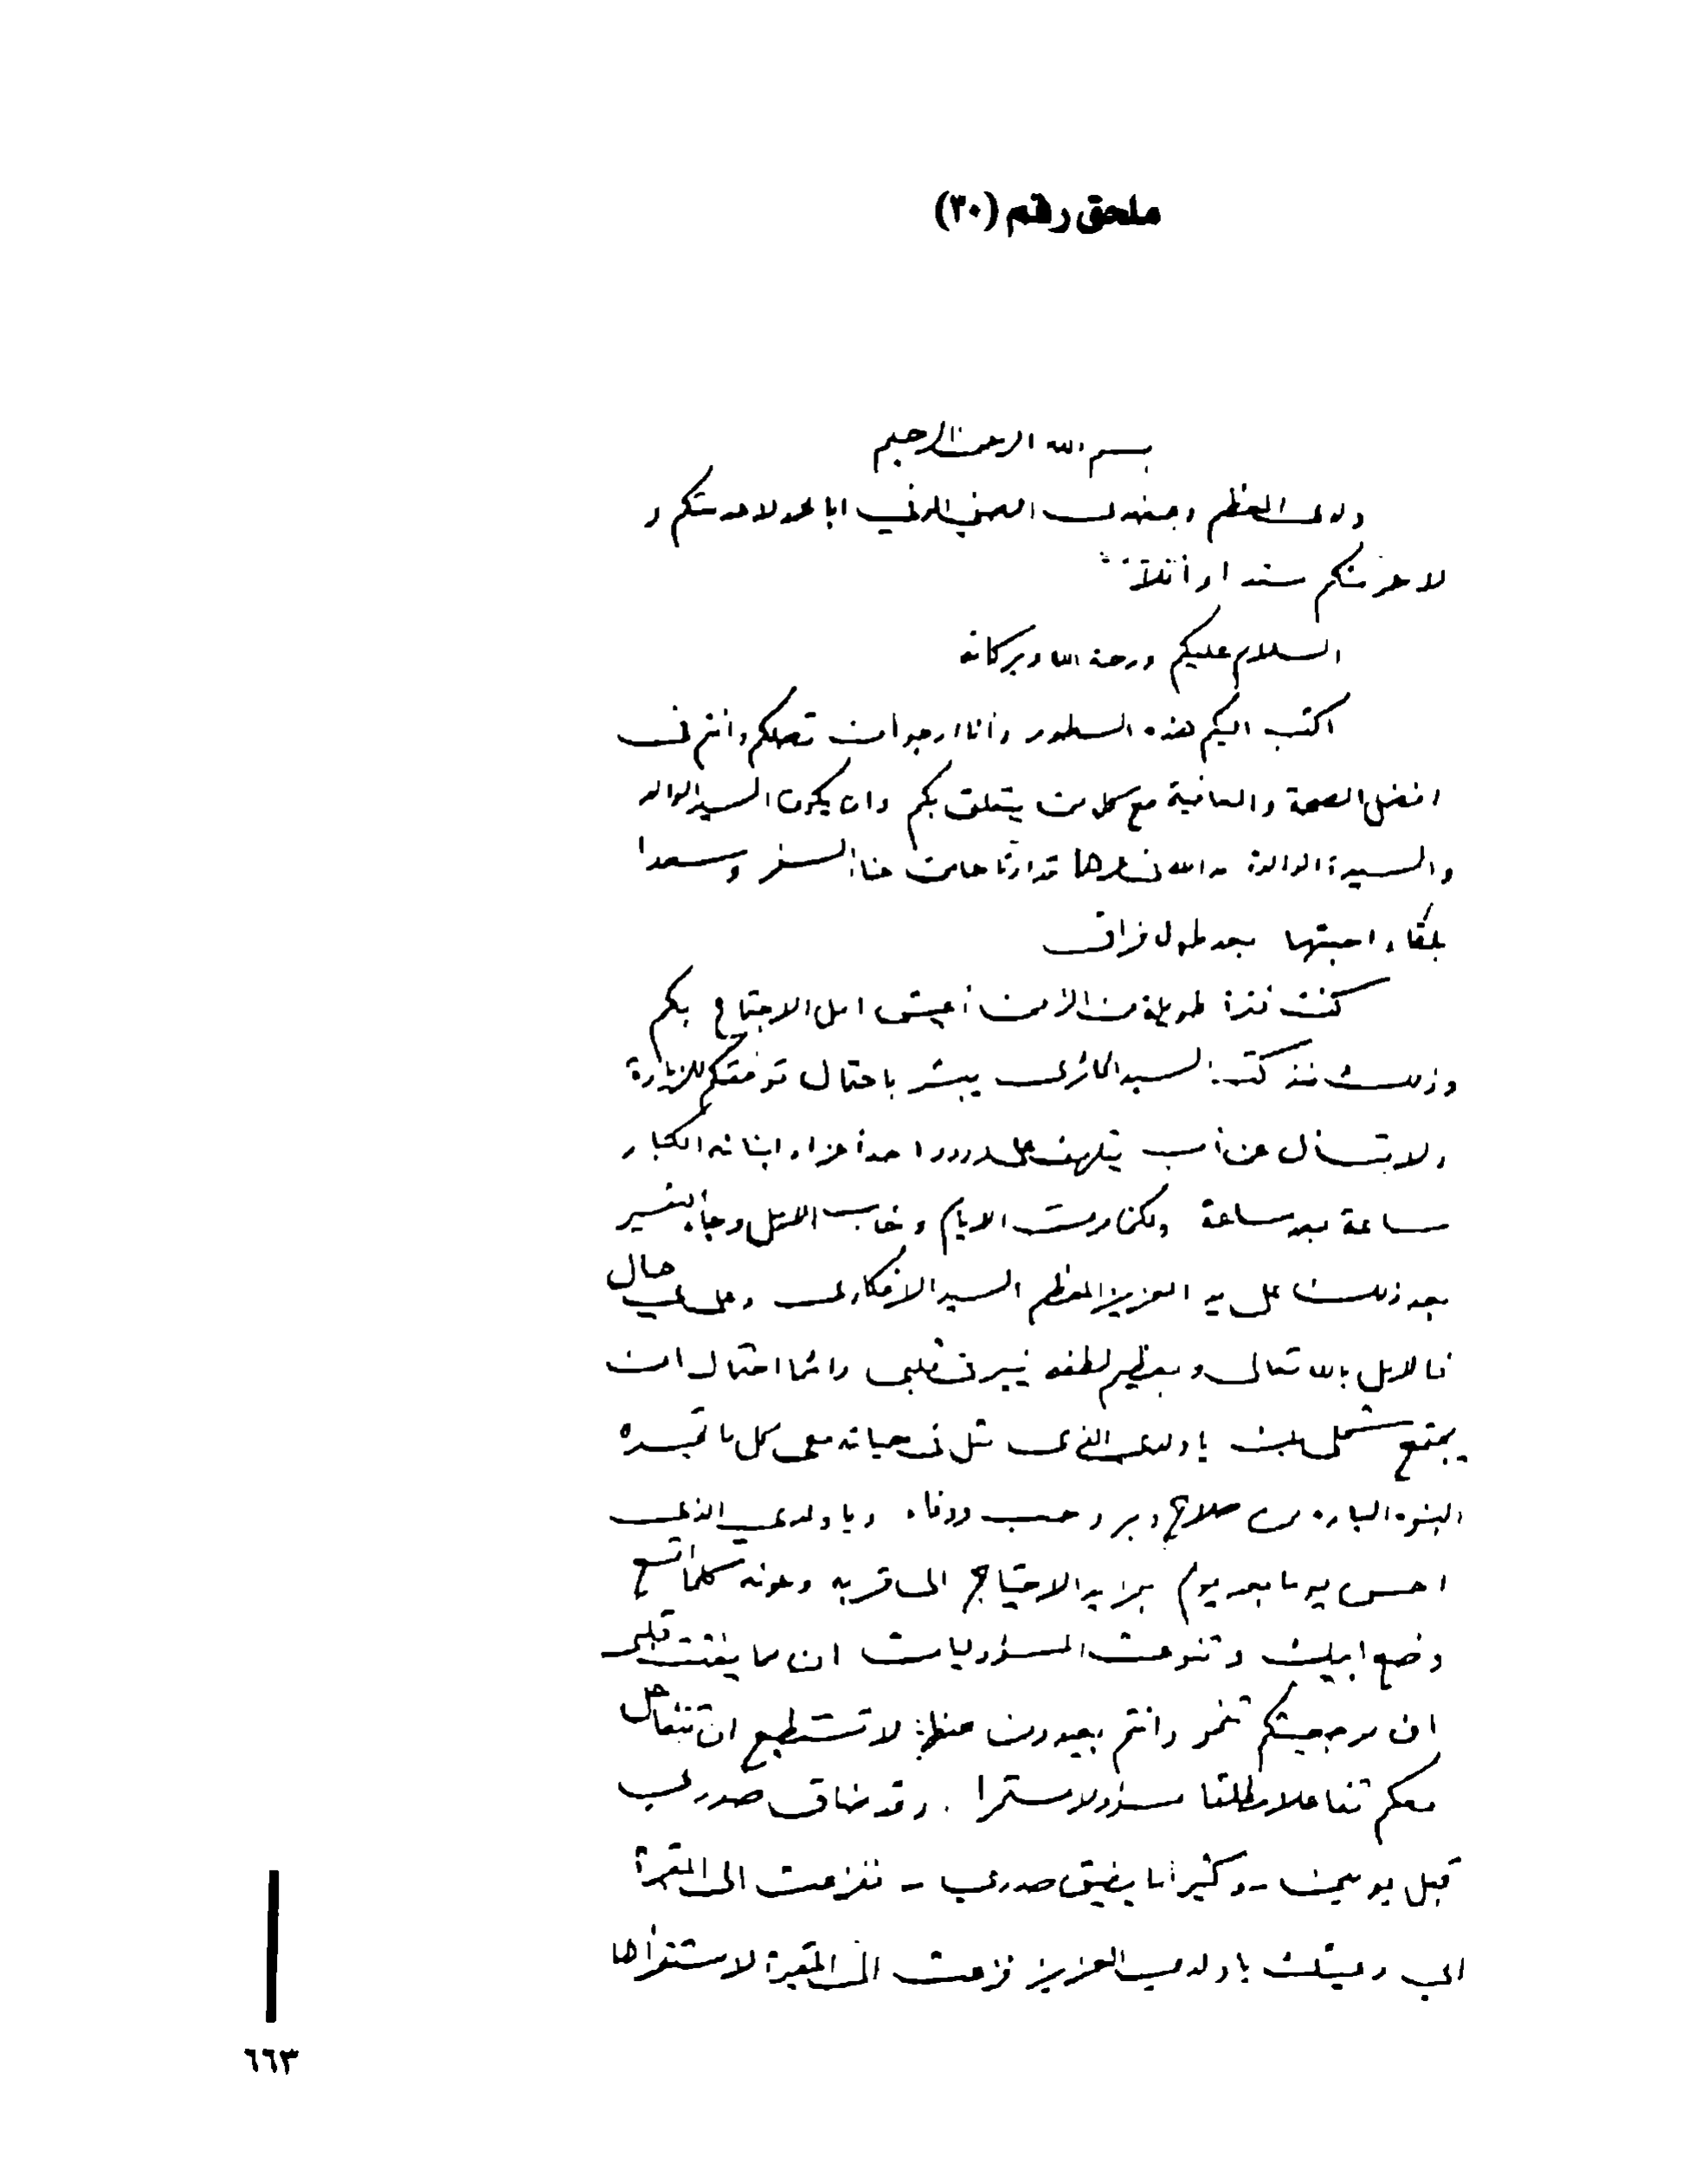 ملحق رقم (٣٠)
بسم الله الرحمن الرحيم
ولدي المعظم و الصفي الوفي ابا محمد لا عدمتكم و
لا حرمتكم سندا و
السلام عليكم ورحمة الله وبركاته
اكتب اليكم هذه السطور وانا ارجو ان تصلكم وانتم في
افضل الصحة والعافية مع كل من يتعلق بكم وان يكون السيد الوالد
والسيدة الوالدة قد ارتاحا من عناء السفر وسعدا
بلقاء احبتهما بعد طول فراق
كنت فترة طويلة من الزمن أعيش امل الاجتماع بكم
وذلك منذ كتب السيد الحائري يبشر باحتمال توفقكم للزيارة
ولا تسأل عن أب يتلهف على ورود احد أعزاء ابنائه الكبار
ساعة بعد ساعة ولكن مرت الايام وخاب الامل وجاء التفسير
بعد ذلك على يد العزيز المعظم السيد الاشكوري وعلى اي حال
فالامل بالله تعالى وبعظيم لطفه ينير في قلبي دائما احتمال ان
يجتمع شملي بك يا ولدي الذي مثل في حياته معي كل ما تجسده
البنوه الباره من صلاح وبر وحب ووفاء ويا ولدي الذي
احس يوما بعد يوم بمزيد الاحتياج الى قربه وعونه كلما اتسع
وضع ابيك وتنوعت المسؤوليات ان مما يفتت قلبي
ان مرجعيتكم تنمو وانتم بعيدون عنها لا تستطيع ان تتفاعل
معكم تفاعلا مطلقا مسؤولا مستمرا . وقد ضاق صدري
قبل يومين - وكثيرا ما يضيق صدري - ففزعت الى المقبرة
الى رفيقك يا ولدي العزيز فزعت الى المقبرة لاستقرأها
٦٦٣